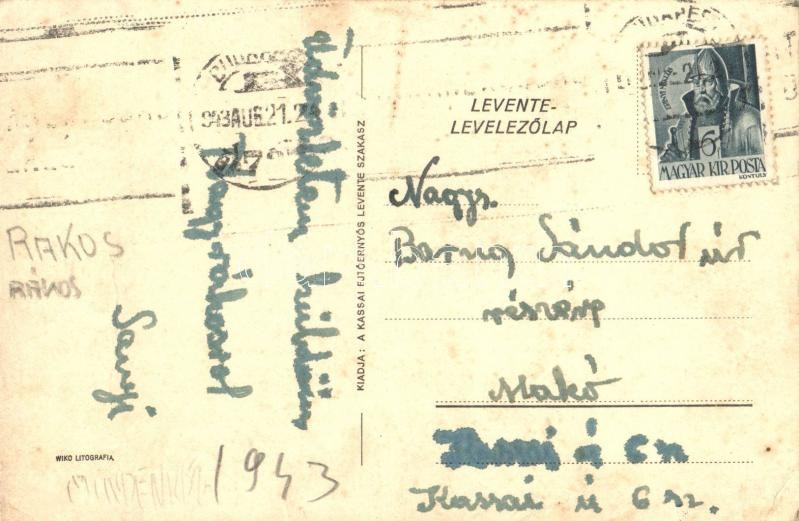 LEVENTE-
LEVELEZŐLAP
6
MAGYAR KIR. POSTA
943 AUG. 21. 2
Üdvözletem küldöm
Nagyrákosról
Sanyi
RÁKOS
RÁKOS
KIADJA: A KASSAI EJTŐERNYŐS LEVENTE SZAKASZ
Nagys.
Sándor úr
részére
Makó
Kassai ú 6 sz
Kassai ú 6 sz.
WIKO LITOGRAFIA
1943